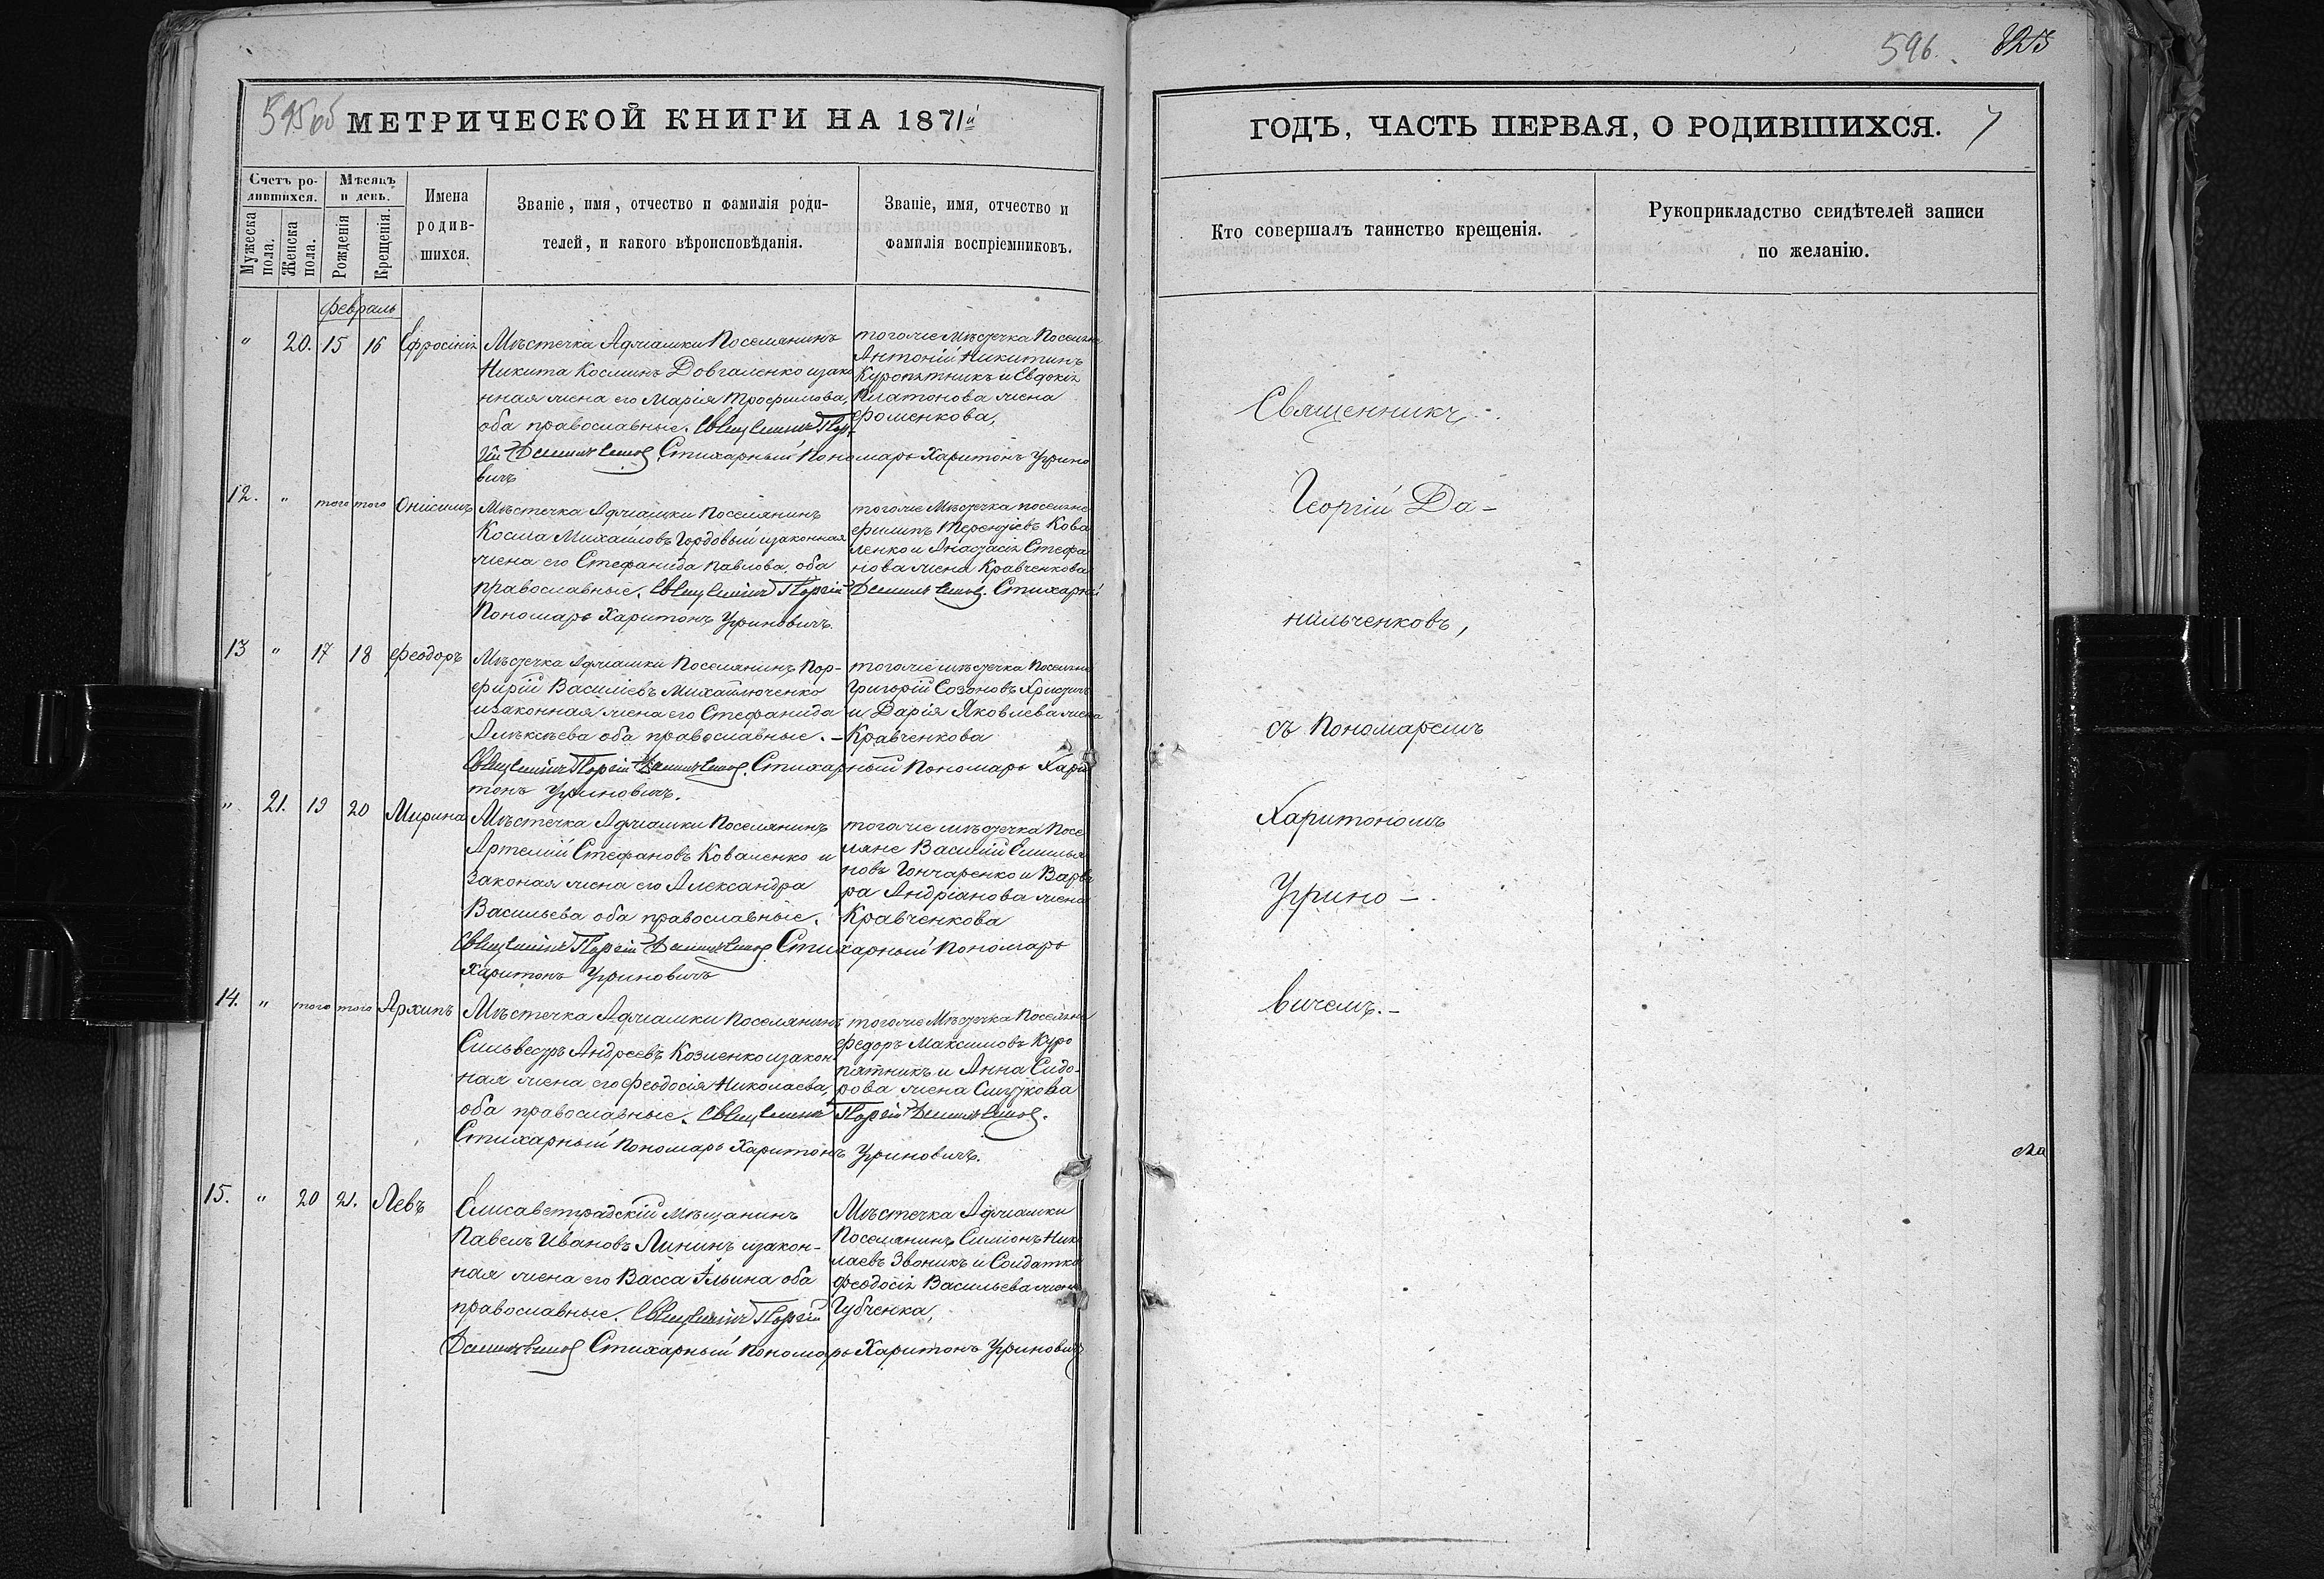 595об
МЕТРИЧЕСКОЙ КНИГИ НА 1871й
Счетъ родившихся.
Мужеска пола.
Женска пола.
Мѣсяцъ и день.
Рожденія
Крещенія.
Имена родившихся.
Званіе, имя, отчество и фамилія родителей, и какого вѣроисповѣданія.
Званіе, имя, отчество и фамилія воспріемниковъ.
февраль
" 20. 15 16 Ефросинія
Мѣстечка Аджамки Поселянинъ
Никита Косминъ Довгаленко изако
нная жена его Марія Трофимова,
оба православные.
Стихарный Пономарь Харитонъ Угрино
вичъ
тогоже Мѣстечка Поселяне
Антоній Никитинъ
Куропятникъ и Евдокія
Платонова жена
Фоменкова,
12. " того того Онисимъ
Мѣстечка Аджамки Поселянинъ
Косма Михаиловъ Гордовый изаконная
жена его Стефанида Павлова, оба
православные. Стихарный
Пономарь Харитонъ Угриновичъ.
тогоже Мѣстечка поселяне
Филипъ Терентіевъ Кова
ленко и Анастасія Стефа
нова жена Кравченкова
13 " 17 18 Феодоръ
Мѣстечка Аджамки Поселянинъ Пор-
фирій Василіевъ Михайлюченко
изаконная жена его Стефанида
Алѣксѣева оба православные. -
Стихарный Пономарь Хари
тонъ Угриновичъ.
тогоже мѣстечка Поселяне
Григорій Созоновъ
и Дарія Яковлева жена
Кравченкова
" 21. 19 20 Мирина
Мѣстечка Аджамки Поселянинъ
Артемій Стефановъ Коваленко и
законая жена его Александра
Васильева оба православные.
Стихарный Пономарь
Харитонъ Угриновичъ
тогоже мѣстечка Посе
ляне Василій Емилья
новъ Гончаренко и Варва
ра Андріанова жена
Кравченкова
14. " того того Архипъ
Мѣстечка Аджамки Поселянинъ
Сильвестръ Андреевъ Козленко изакон
ная жена его Феодосія Николаева,
оба православные.
Стихарный Пономарь Харитонъ Угриновичъ.
тогоже Мѣстечка Поселяне
Федоръ Максимовъ Куро
пятникъ и Анна Сидо-
рова жена
15. " 20 21. Левъ
Елисаветградскій мѣщанинъ
Павелъ Ивановъ Лининъ изакон-
ная жена его Васса Ильина оба
православные.
Стихарный Пономарь Харитонъ Угриновичъ
Мѣстечка Аджамки
Поселянинъ Симіонъ Нико
лаевъ Звоникъ и Солдатка
Феодосія Васильева жена
Губченка,
596. 823
ГОДЪ, ЧАСТЬ ПЕРВАЯ, О РОДИВШИХСЯ. 7
Кто совершалъ таинство крещенія.
Рукоприкладство свидѣтелей записи
по желанію.
Священникъ
Георгій Да-
нильченковъ,
съ Пономаремъ
Харитономъ
Угрино-
вичемъ.-